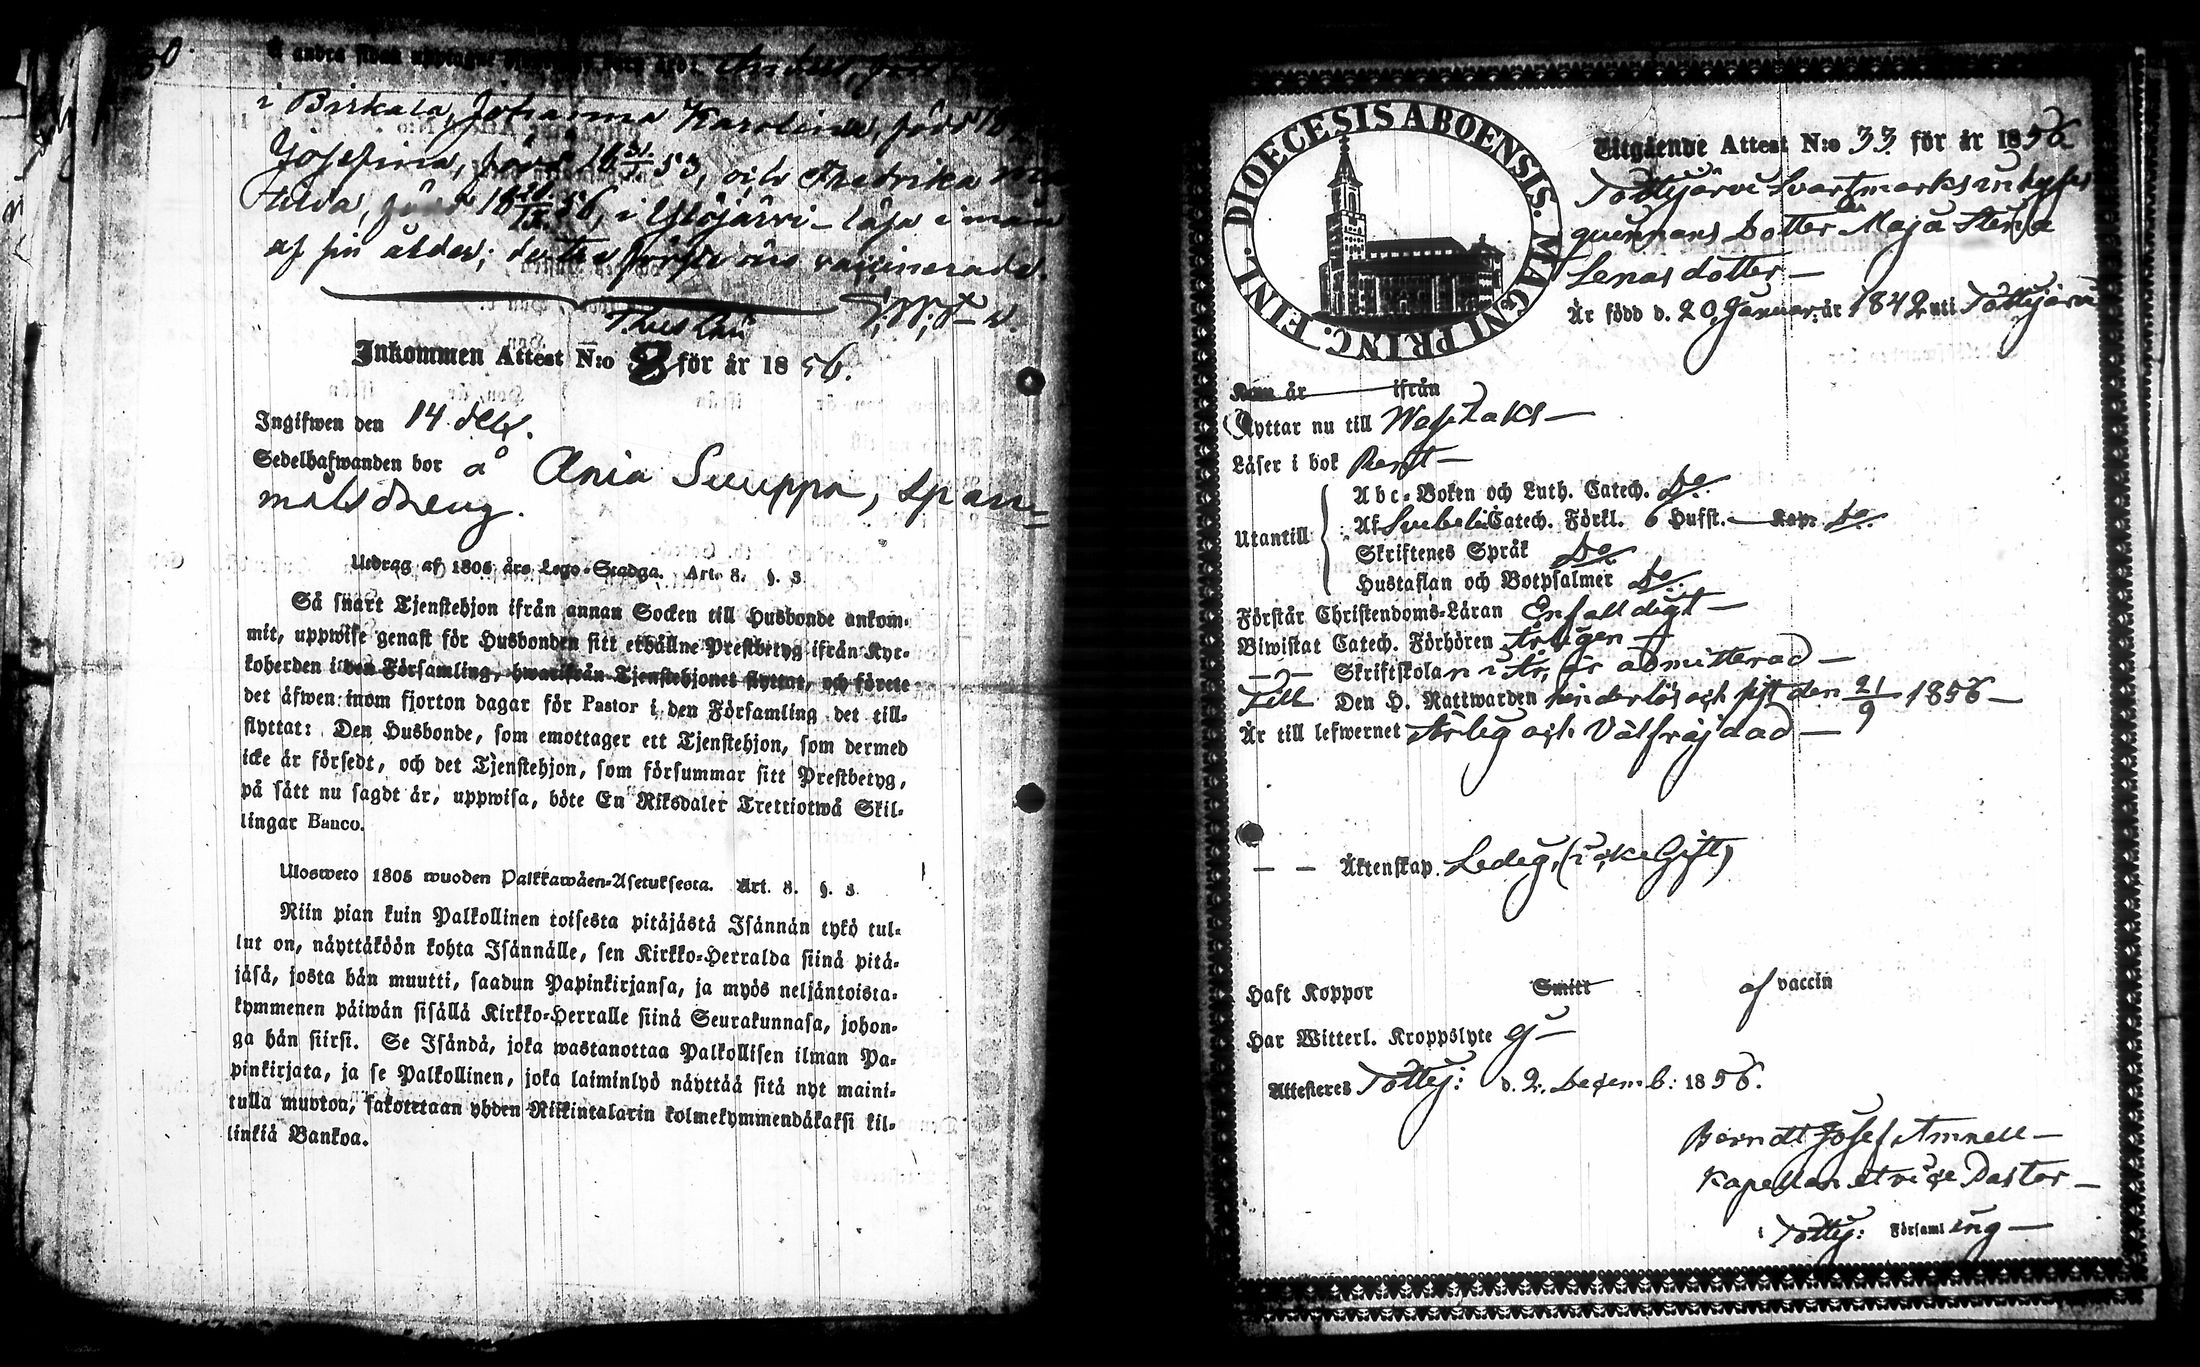 å andra sidan upptagne
i Birkala, Johanna Karolina, född 18
Josefina, född 18 53, och Fredrika Ma
tilda, född 18 56, i Ylöjärvi – läsa i mån
af sin ålder; de tre förste äro vaccinerade.
Inkommen Attest N:o 8 för år 1856.
Ingifwen den 14 dec.
Sedelhafwanden bor å Ania Suuppa, span-
målsdreng.
Utdrag af 1805 års Lego-Stadga. Art. 8. §. 3.
Så snart Tjenstehjon ifrån annan Socken till Husbonde ankom-
mit, uppwise genast för Husbonden sitt erhållne Prestbetyg ifrån Kyr-
koherden i den Församling, hwarifrån Tjenstehjonet flyttat, och förete
det äfwen inom fjorton dagar för Pastor i den Församling det till-
flyttat: Den Husbonde, som emottager ett Tjenstehjon, som dermed
icke är försedt, och det Tjenstehjon, som försummar sitt Prestbetyg,
på sätt nu sagdt är, uppwisa, böte En Riksdaler Trettiotwå Skil-
lingar Banco.
Ulosweto 1805 wuoden Palkkawäen-Asetuksesta. Art. 8. §. 3
Niin pian kuin Palkollinen toisesta pitäjästä Isännän tykö tul-
lut on, näyttäköön kohta Isännälle, sen Kirkko-Herralda siinä pitä-
jäsä, josta hän muutti, saadun Papinkirjansa, ja myös neljäntoista-
kymmenen päiwän sisällä Kirkko-Herralle siinä Seurakunnasa, johon-
ga hän siirsi. Se Isändä, joka wastanottaa Palkollisen ilman Pa-
pinkirjata, ja se Palkollinen, joka laiminlyö näyttää sitä nyt maini-
tulla muotoa, sakotetaan yhden Riikintalarin kolmekymmendäkaksi kil-
linkiä Bankoa.
DIOECESIS ABOENSIS. MAGNI PRINC. FINL.
Utgående Attest N:o 33 för år 1856
Tottijärvi Svartmarks inhyses
quinnans Dotter Maja Stena
Lenasdotter –
Är född d. 20 Januar: år 1842 uti Tottijärvi
Kom år ifrån
Flyttar nu till Wesilaks –
Läser i bok Rent –
Utantill
Abc-Boken och Luth. Catech. Do.
Af Svebelii Catech. Förkl. 6 Hufst. – Kap. do.
Skriftenes Språk Do
Hustaflan och Botpsalmer do.
Förstår Christendoms-Läran Enfalldigt –
Biwistat Catech. Förhören Årligen –
– ? – Skriftskolan i År, är admitterad –
Till Den H. Nattwarden hinderlös och sist den 21/9 1856 –
Är till lefwernet Ärlig och Välfräjdad –
– – Äktenskap. Ledig, (icke Gift)
Haft Koppor Smitt af vaccin
Har Witterl. Kroppslyte Ej –
Attesteres Tottij: d. 2. Decemb: 1856.
Berndt Josef Amnell –
Kapellan et vice Pastor –
i Tottij: Församling –